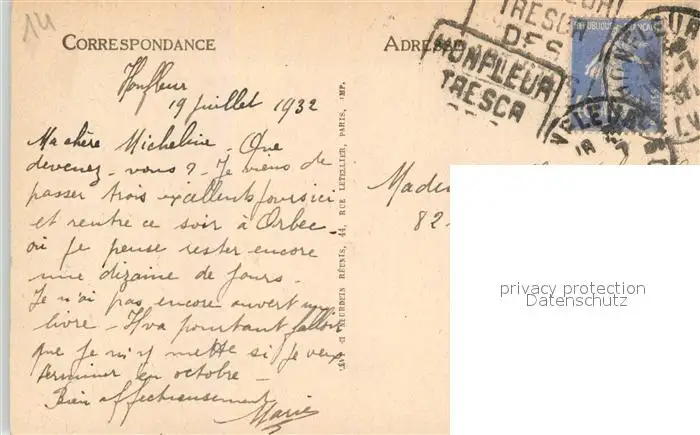 14
CORRESPONDANCE
ADRESSE
TRESCA
DES
HONFLEUR
TRESCA
Honfleur
19 juillet 1932
Ma chère Micheline - Que
devenez-vous ? Je viens de
passer trois excellents jours ici
et rentre ce soir à Orbec -
où je pense rester encore
une dizaine de jours -
Je n'ai pas encore ouvert un
livre - Il va pourtant falloir
que je m'y mette si je veux
terminer en octobre -
Bien affectueusement
Marie
LETELLIER, PARIS, IMP.
NEURDEIN RÉUNIS, 44, RUE
Madem
82
privacy protection
Datenschutz